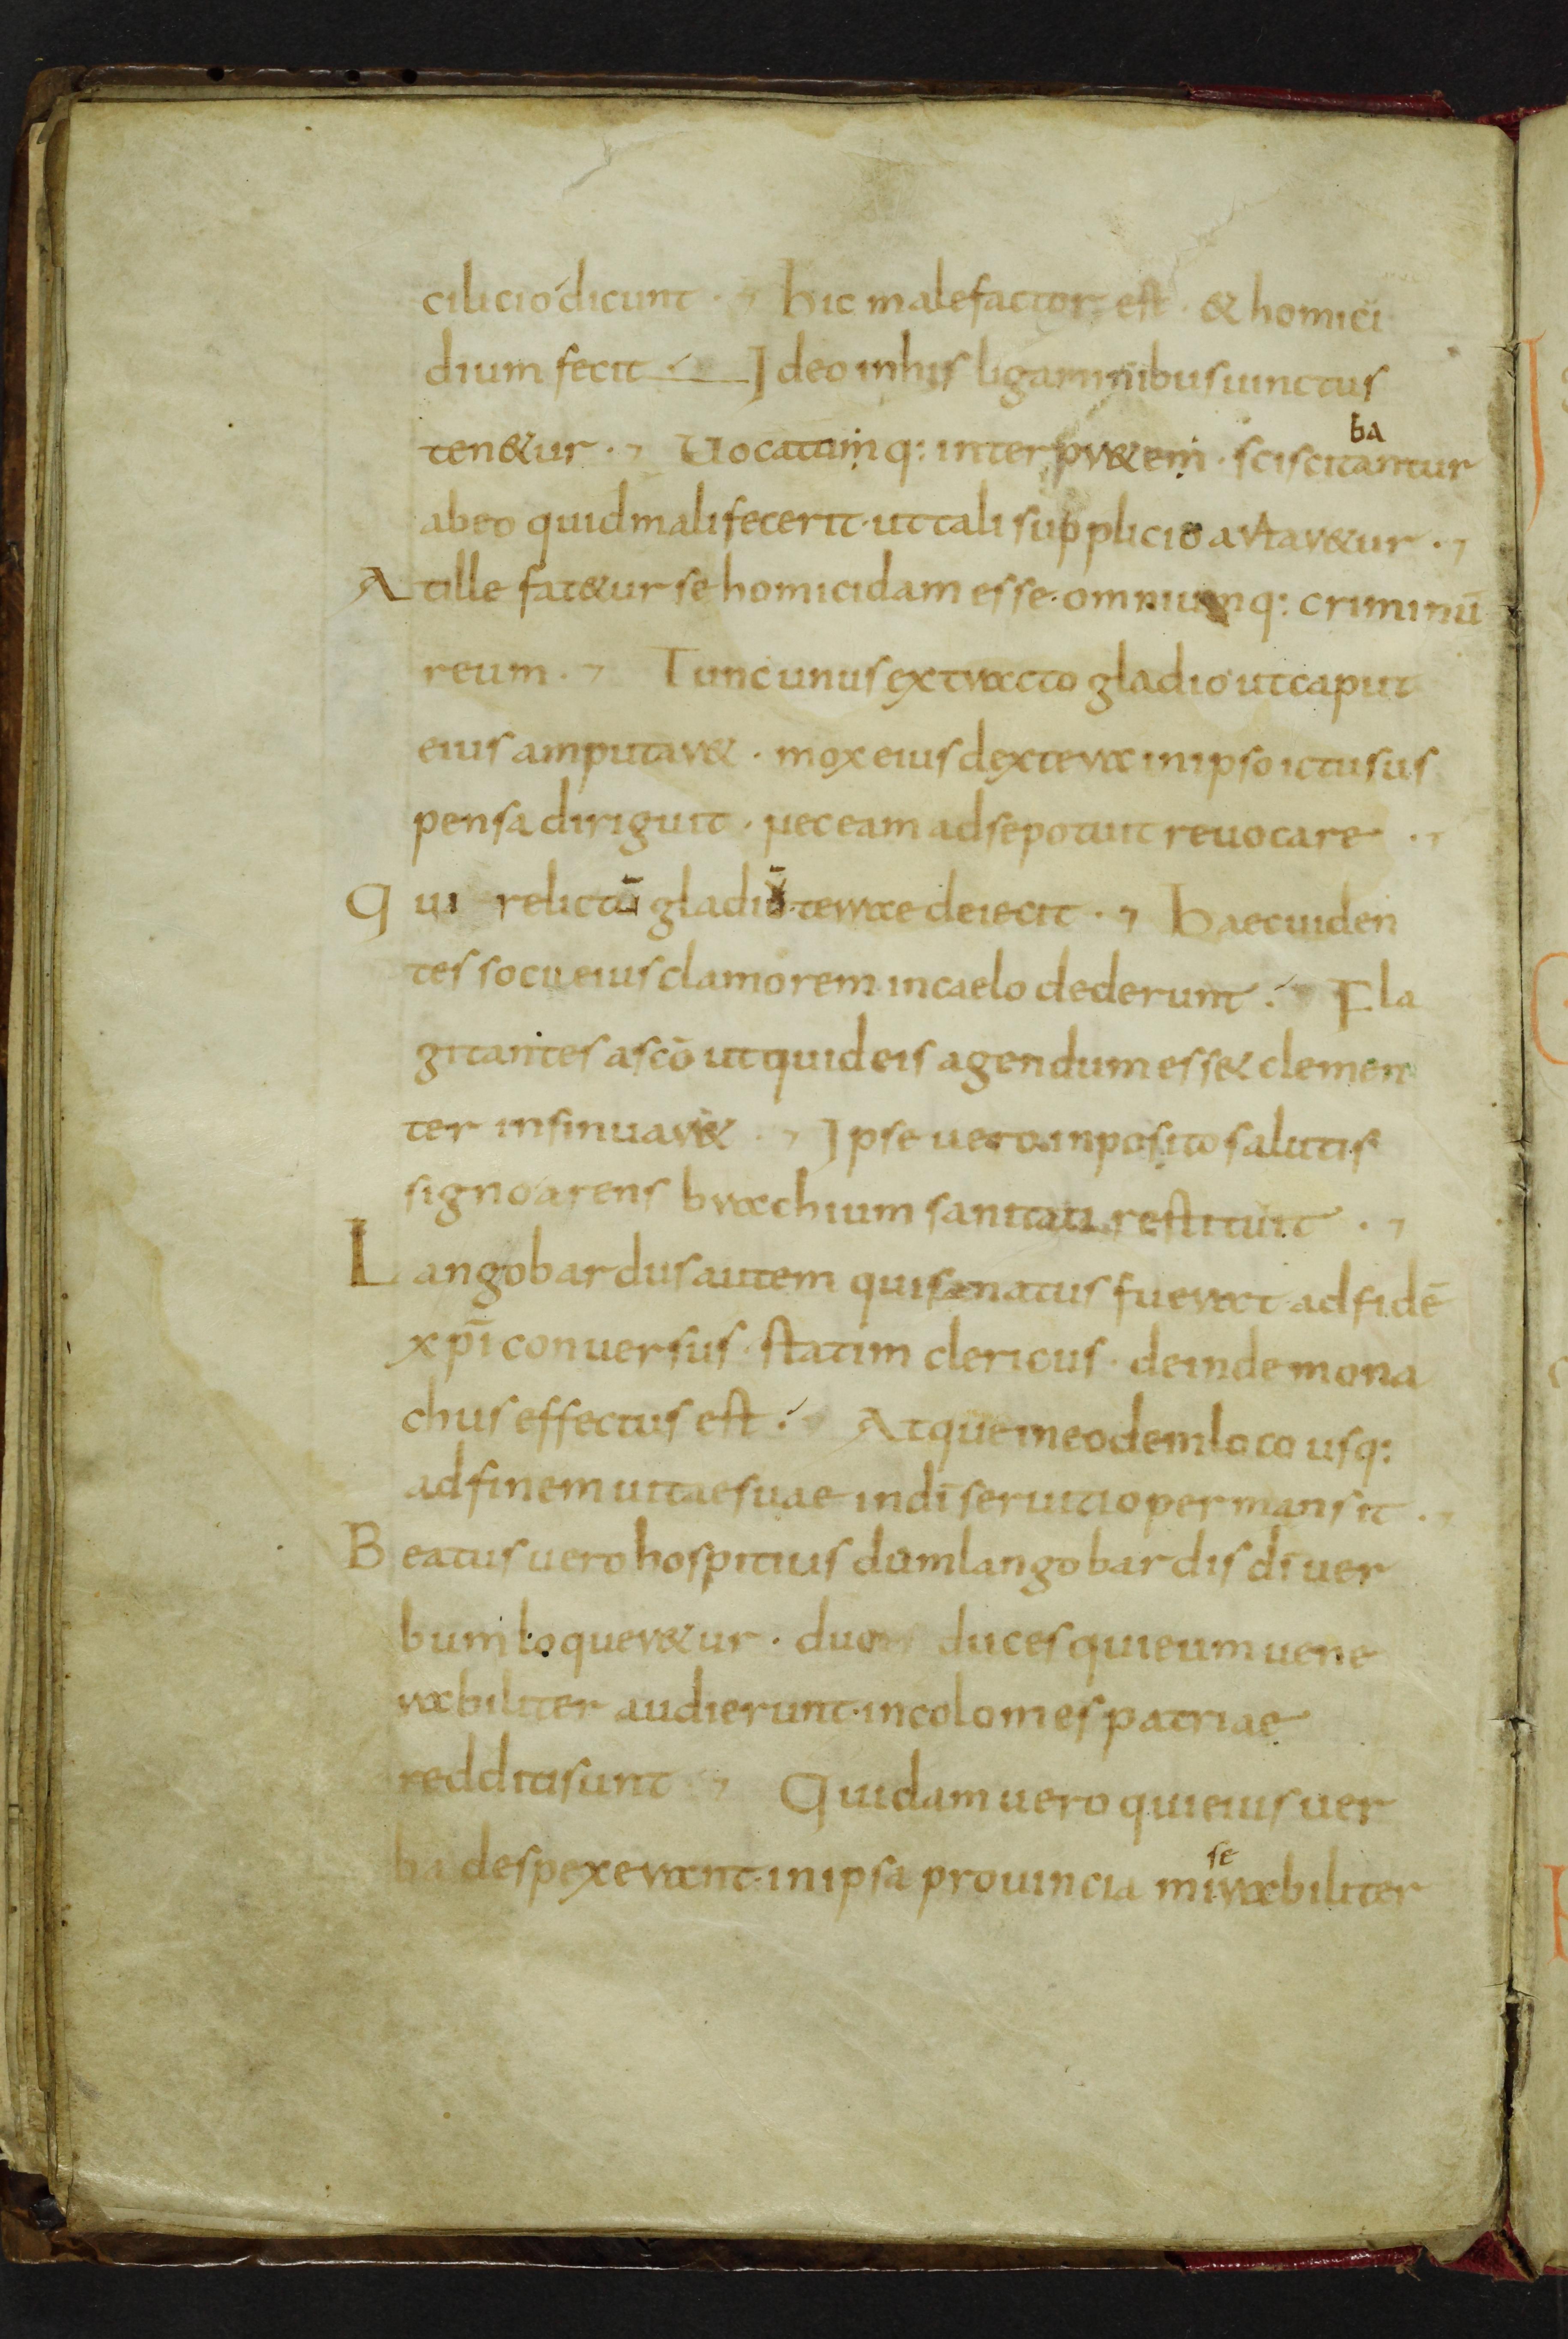 cilicio dicunt · Hic malefactor est · & homici
dium fecit · Ideo in his ligaminibus uinctus
ten&ur · Uocatumq: interpr&em · sciscitantur
ba
ab eo quid mali fecerit · ut tali supplicio artar&ur ·
At ille fat&ur se homicidam esse · omniumq: criminū
reum · Tunc unus extracto gladio ut caput
eius amputar& · mox eius dextera in ipso ictu sus
pensa diriguit · nec eam ad se potuit reuocare ·
Qui relictū gladiū terrae deiecit · Haec uiden
tes socii eius clamorem in caelo dederunt · Fla
gitantes a scō ut quid eis agendum ess& clemen
ter insinuar& · Ipse uero inposito salutis
signo arens brachium sanitati restituit ·
Langobardus autem qui sanatus fuerat ad fidē
xp̄i conuersus · statim clericus · deinde mona
chus effectus est · Atque in eodem loco usq:
ad finem uitae suae in dī seruitio permansit ·
Beatus uero hospitius dum langobardis dī uer
bum loquer&ur · duo duces qui eum uene
rabiliter audierunt · incolomes patriae
redditi sunt Quidam uero qui eius uer
ba despexerant · in ipsa prouincia mirabiliter
se